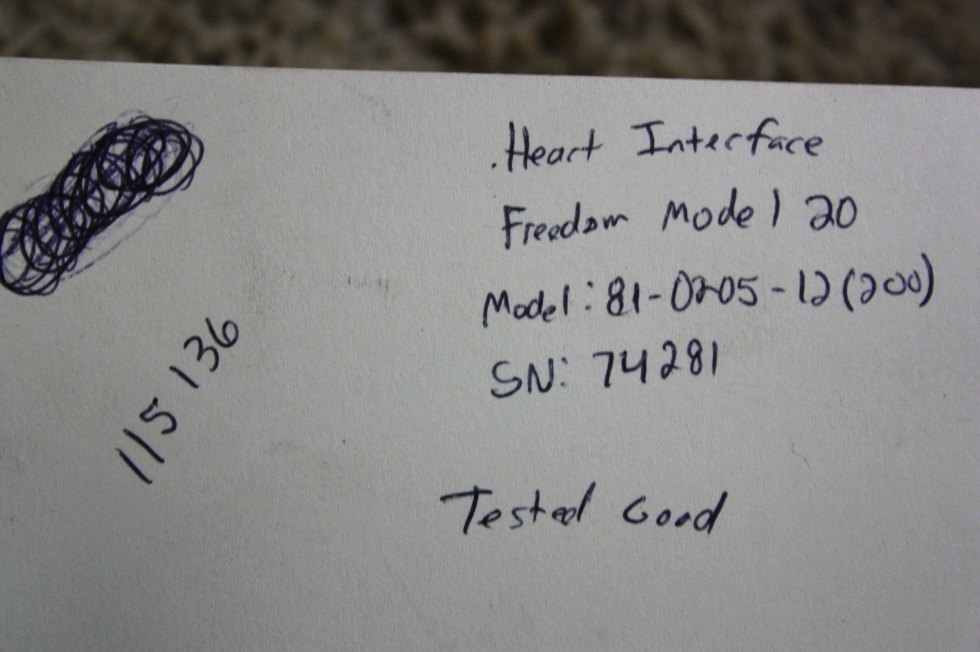 Heart Interface
Freedom Model 20
Model: 81-0205-12 (200)
SN: 74281
115136
Tested Good